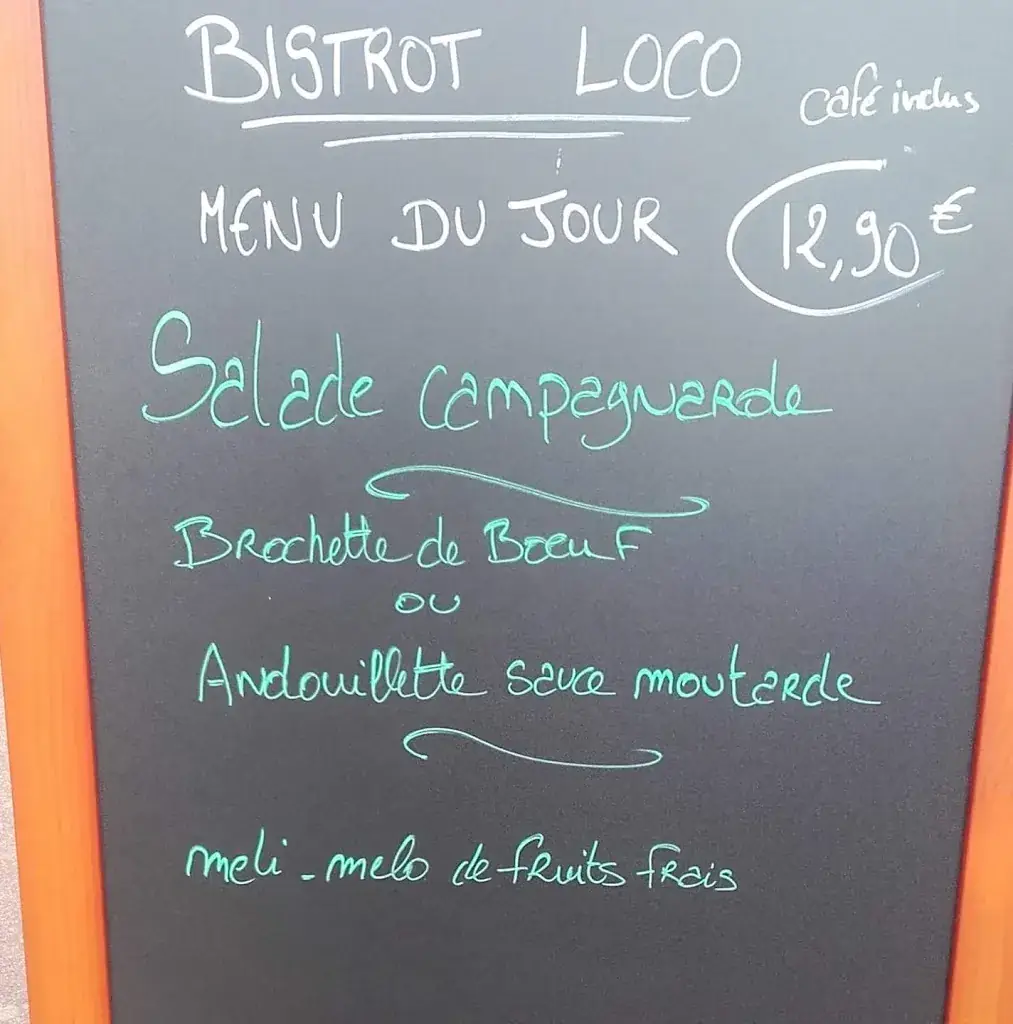 BISTROT LOCO
café inclus
MENU DU JOUR 12,90 €
Salade campagnarde
Brochette de Boeuf
ou
Andouillette sauce moutarde
meli-melo de fruits frais